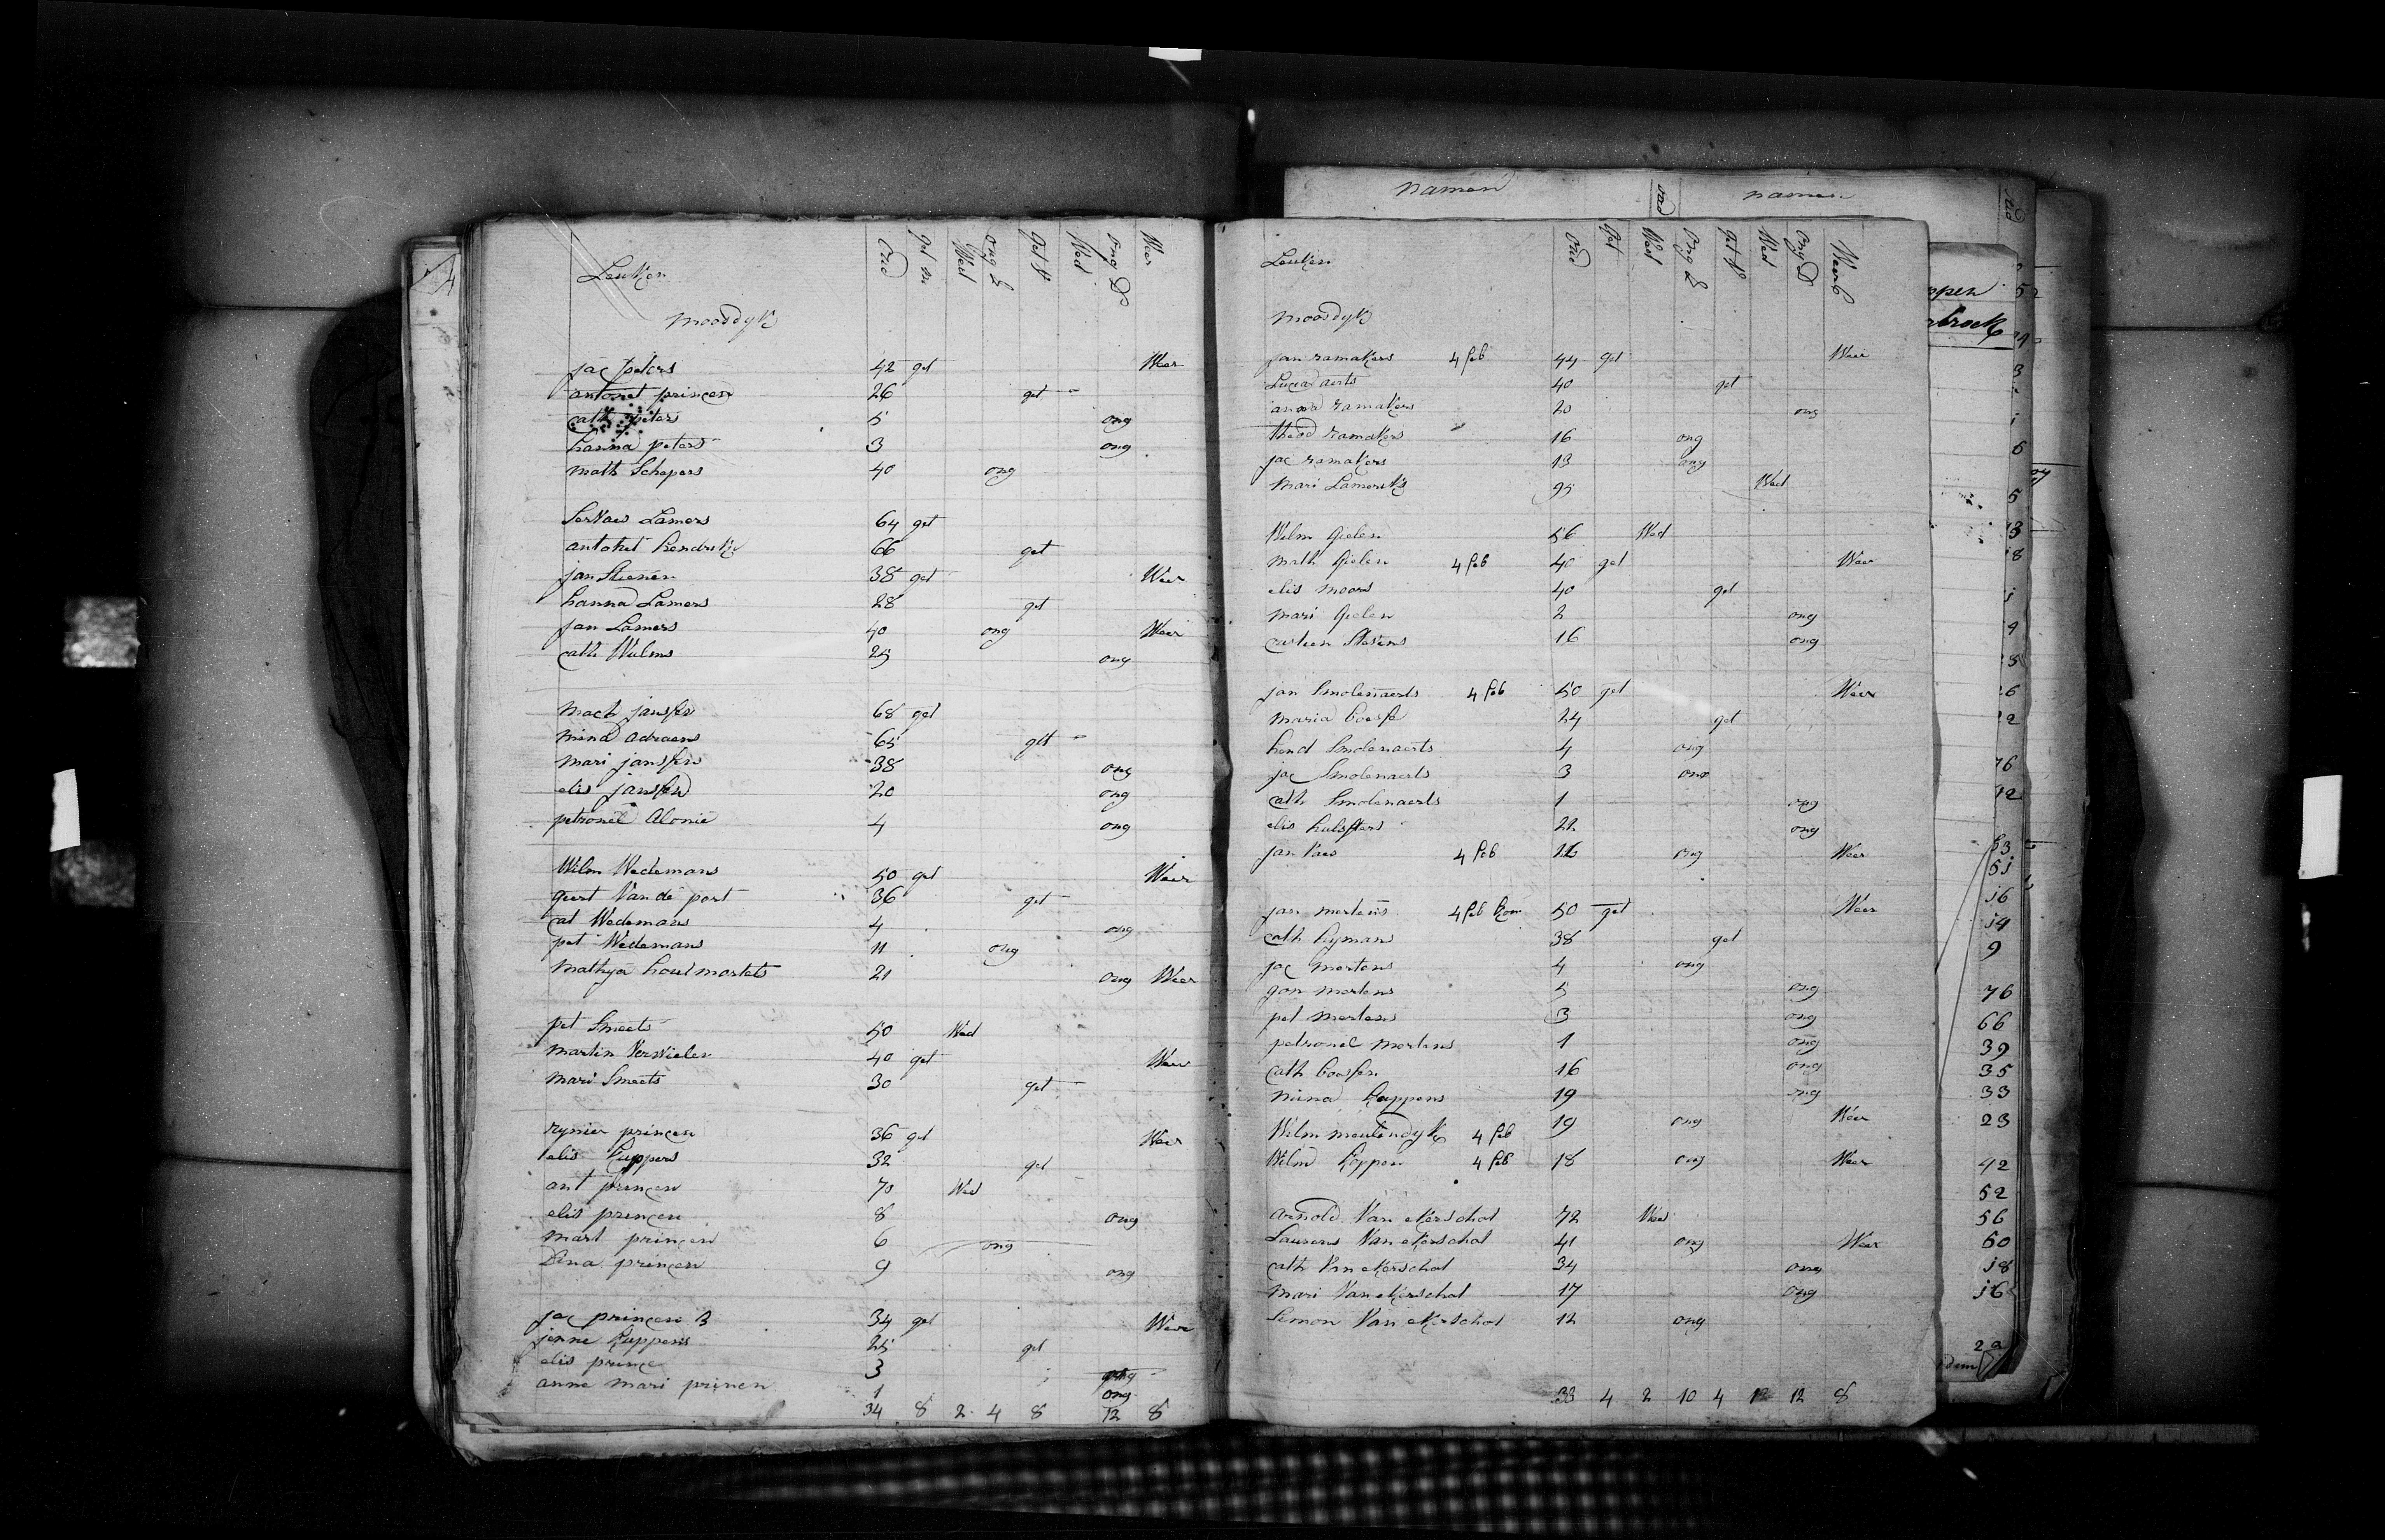 Leuken oud get m Wed ong l get V Wed ong D Weer
moosdyk
jac peters 42 get Weer
antonet princen 26 get -
cath peters 5 ong
hanna peters 3 ong
math Schepers 40 ong
Servaes Lamers 64 get
antonet hendriks 66 get
jan Steenen 38 get Weer
hanna Lamers 28 get
jan Lamers 40 ong Weer
cath Wulms 25 ong
mach jansen 68 get
mina adriaens 65 get -
mari jansen 38 ong
elis jansen 20 ong
petronel Alonie 4 ong
Wilm Wedemans 50 get Weer
geert Van de port 36 get -
cat Wedemans 4 ong
pet Wedemans 11 ong
mathya houtmortels 21 ong Weer
pet Smeets 50 Wed
martin Vervielen 40 get Weer
mari Smeets 30 get -
rynier princen 36 get Weer
elis Kuppers 32 get
ant princen 70 Wed
elis princen 8 ong
mart princen 6 ong
Dina princen 9 ong
jac princen B 34 get Weer
jenne Kuppens 25 get
elis prince 3 ong
anne mari prinen 1 ong
34 8 2 4 8 12 8
namen oud namen oud
Leuken oud get Wed ong l get V Wed ong D Weerb
moosdyk
jan ramakers 4 feb 44 get Weer
Lucia aerts 40 get
anna ramakers 20 ong
theod ramakers 16 ong
jac ramakers 13 ong
mari Lameriks 95 Wed
Wilm Gielen 56 Wed
math Gielen 4 feb 40 get Weer
elis moors 40 get
mari Gielen 2 ong
Stevens 16 ong
jan Smolenaerts 4 feb 50 get Weer
maria 24 get
hend Smolenaerts 4 ong
jac Smolenaerts 3 ong
cath Smolenaerts 1 ong
elis 22 ong
jan Vaes 4 feb ong Weer
jan mertens 4 feb 50 get Weer
cath hymans 38 get
jac mertens 4 ong
gon mertens 5 ong
pet mertens 3 ong
petronel mertens 1 ong
cath 16 ong
mina Kuppens 19 ong
Wilm meulendyk 4 feb 19 ong Weer
Wilm Koppen 4 feb 18 ong Weer
arnold Van ekerschot 72 Wed
Laurens Van ekerschot 41 ong Weer
cath Van ekerschot 34 ong
mari Van ekerschot 17 ong
Simon Van ekerschot 12 ong
33 4 2 10 4 12 8
ppen 52
broek
76
66
39
35
33
23
42
52
56
60
18
16